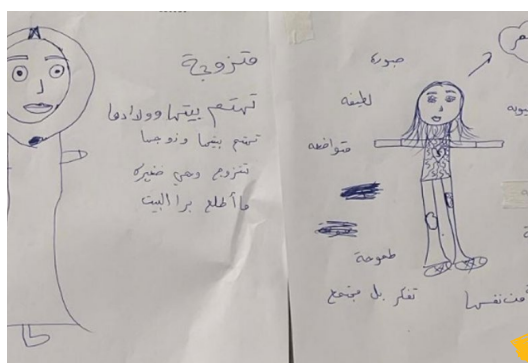 متزوجة
تهتم بيتها وولادها
تهتم بيتها وزوجها
تتزوج وهي صغيره
ما أطلع برا البيت
صبورة
لطيفه
متواضعه
طموحة
تفكر بل مجتمع
نفسها